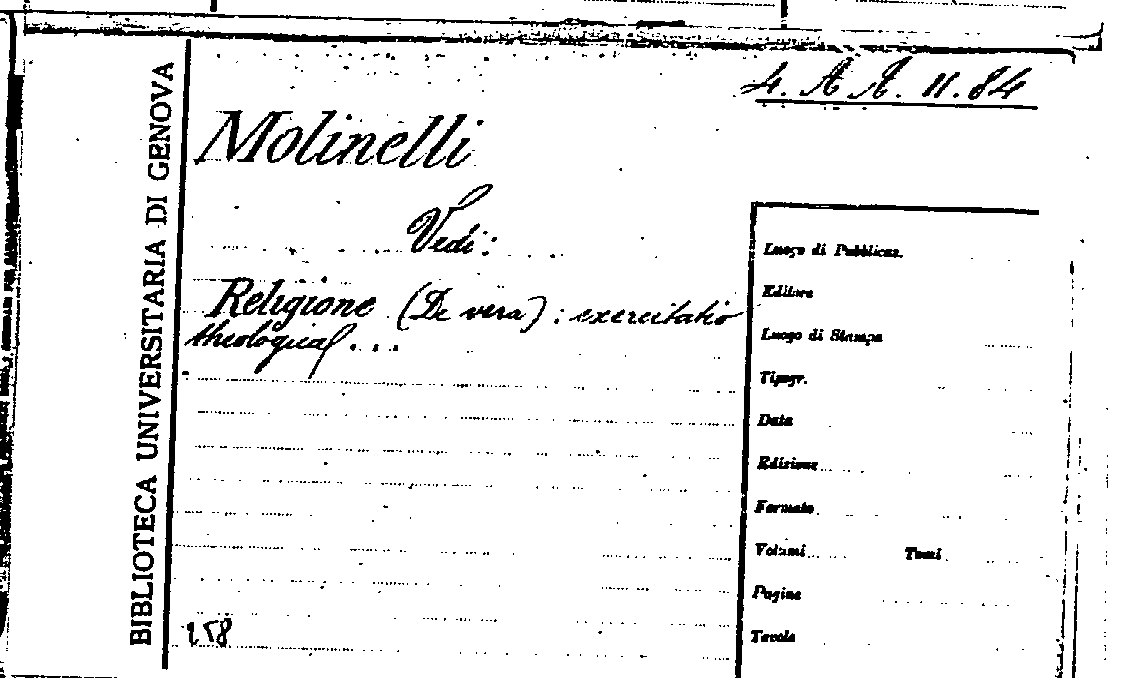 4. A A. 11. 84
BIBLIOTECA UNIVERSITARIA DI GENOVA
Molinelli
Vedi:
Religione (De vera) : exercitatio
theological ...
Luogo di Pubblicaz.
Editore
Luogo di Stampa
Tipogr.
Data
Edizione
Formato
Volumi Tomi
Pagine
Tavole
258